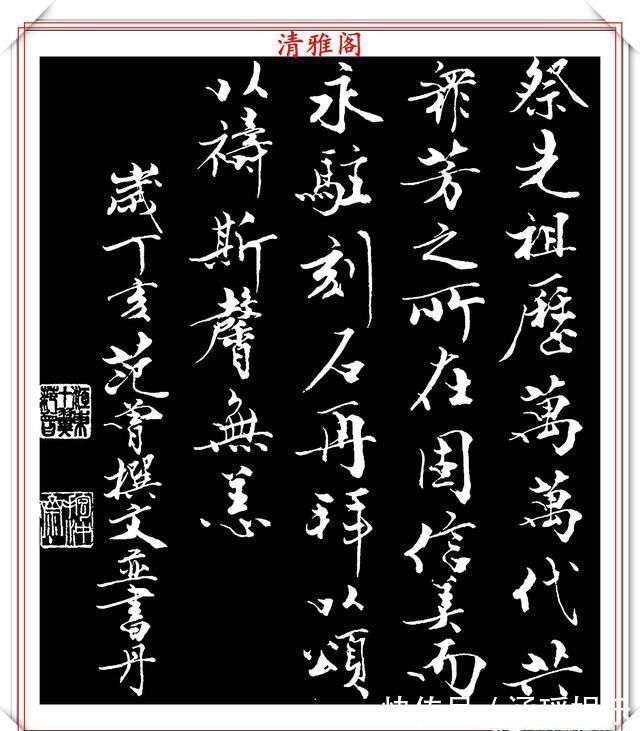 清雅阁
祭先祖歷萬萬代
眾芳之所在固信美而
永駐刻石再拜以頌
以禱斯馨無恙
歲丁亥范曾撰文並書丹
抱沖齋
快传号